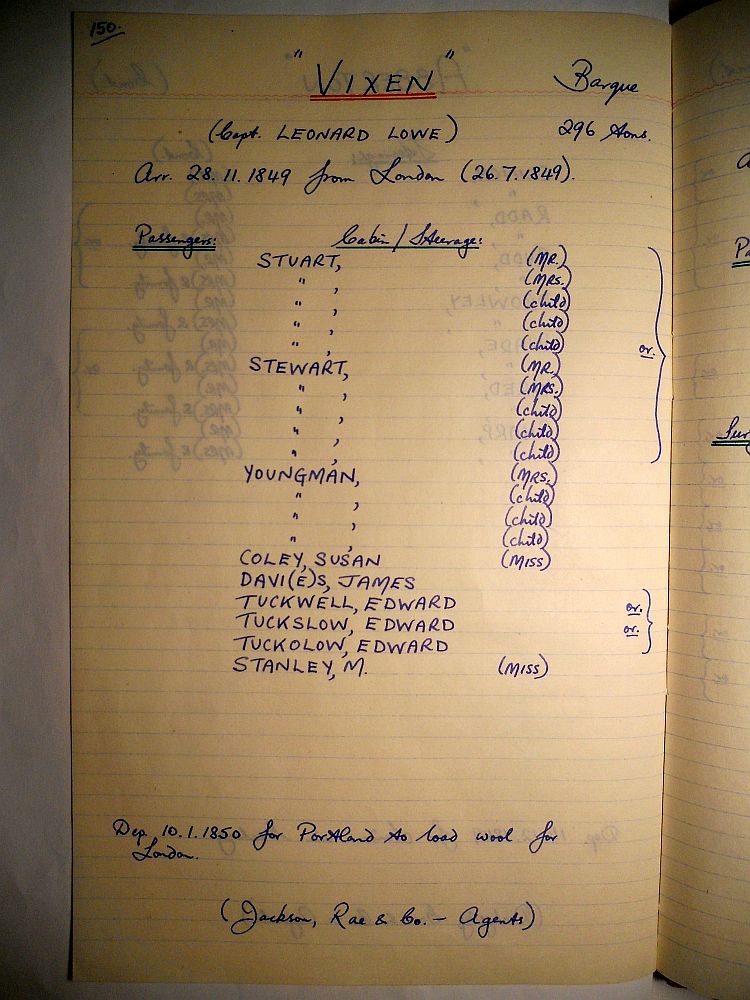 150.
"VIXEN" Barque
(Capt. LEONARD LOWE) 296 tons.
Arr. 28.11.1849 from London (26.7.1849).
Passengers: Cabin/Steerage:
STUART, (MR.)
" , (MRS.)
" , (child)
" , (child)
" , (child) or.
STEWART, (MR.)
" , (MRS.)
" , (child)
" , (child)
" , (child)
YOUNGMAN, (MRS.)
" , (child)
" , (child)
" , (child)
COLEY, SUSAN (MISS)
DAVI(E)S, JAMES
TUCKWELL, EDWARD or.
TUCKSLOW, EDWARD or.
TUCKOLOW, EDWARD
STANLEY, M. (MISS)
Dep. 10.1.1850 for Portland to load wool for
London.
(Jackson, Rae & Co. - Agents)